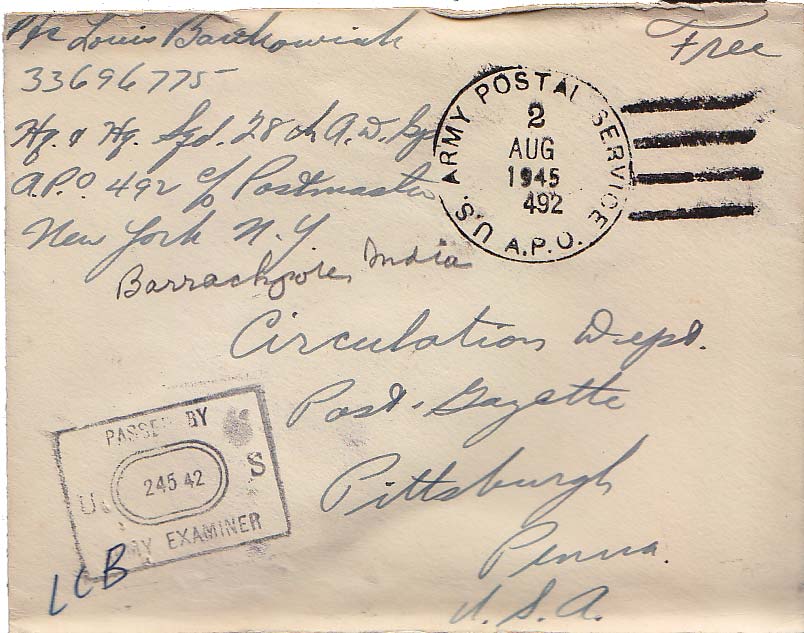 Pfc Louis Bartkowiak
Free
33696775
Hq. & Hq. Sqd. 28th A.D. Gp.
A.P.O. 492 c/o Postmaster
New York N.Y
Barrackpore, India
U.S. ARMY POSTAL SERVICE
2
AUG
1945
492
A.P.O.
Circulation Dept.
Post-Gazette
Pittsburgh
Penna.
U.S.A.
PASSED BY
U. S
245 42
ARMY EXAMINER
LCB